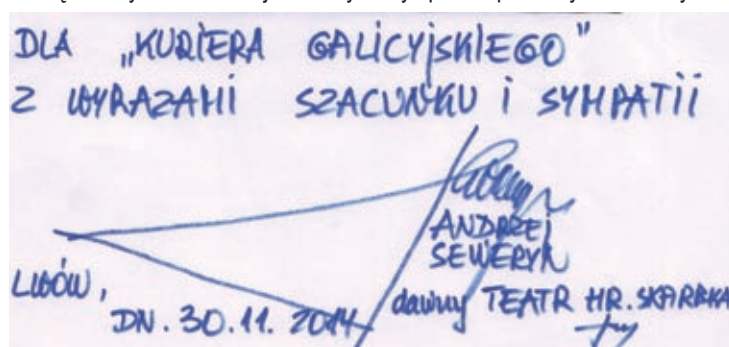 DLA „KURIERA GALICYJSKIEGO"
Z WYRAZAMI SZACUNKU i SYMPATII
ANDRZEJ
SEWERYN
LWÓW,
DN. 30.11. 2014
dawny TEATR HR. SKARBKA